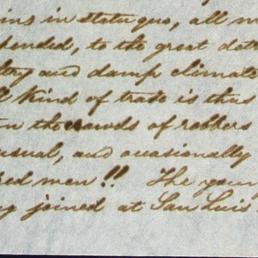 ins in statu quo, all m
pended, to the great det
ltry and damp climate
l kind of trade is thus
n the rowds of robbers
usual, and occasionally
red men!! The youn
g joined at San Luis